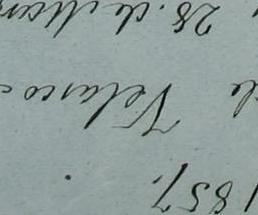 1857.
de Velasco
28. de